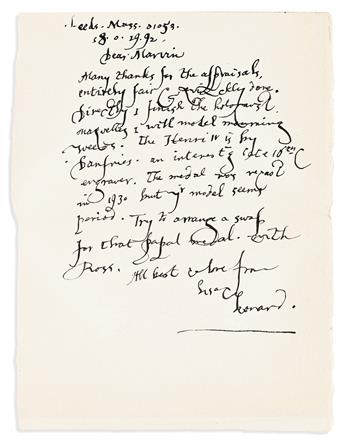 Leeds. Mass. 01053.
18.0.1992.
Dear Marvin
Many thanks for the appraisals,
entirely fair & quickly done.
Directly I finish the holocaust
maquettes I will model mourning
weeds. The Henri IV is by
Danfries. an interest'g late 16th C
engraver. The medal was recast
in 1930 but yr model seems
period. Try to arrange a swap
for that papal medal. with
Ross.
All best & love from
Lisa &
Leonard.